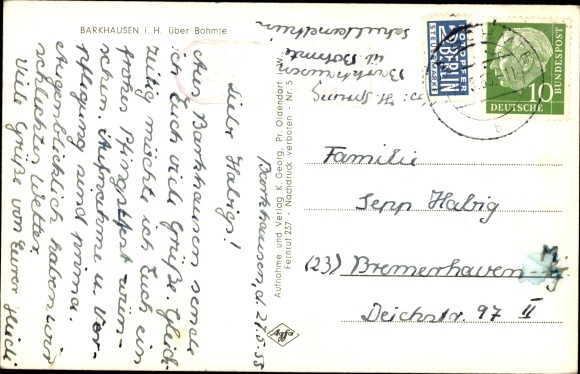 BARKHAUSEN i. H. über Bohmte
Barkhausen, d. 21.5.55
Liebe Habigs!
Aus Barkhausen sende
ich Euch viele Grüße. Gleich-
zeitig möchte ich Euch ein
frohes Pfingstfest wün-
schen. Aufnahme u. Ver-
pflegung sind prima.
Augenblicklich haben wir
schlechtes Wetter.
Viele Grüße von Eurer Heidi
Aufnahme und Verlag K. Georg, Pr. Oldendorf i. W.
Fernruf 237 - Nachdruck verboten - Nr. 5
Agfa
H. Sprung
Barkhausen
üb. Bohmte
NOTOPFER
2 BERLIN
STEUERMARKE
DEUTSCHE
BUNDESPOST
10
b
Familie
Sepp Habig
(23) Bremerhaven-M
Deichstr. 97 II